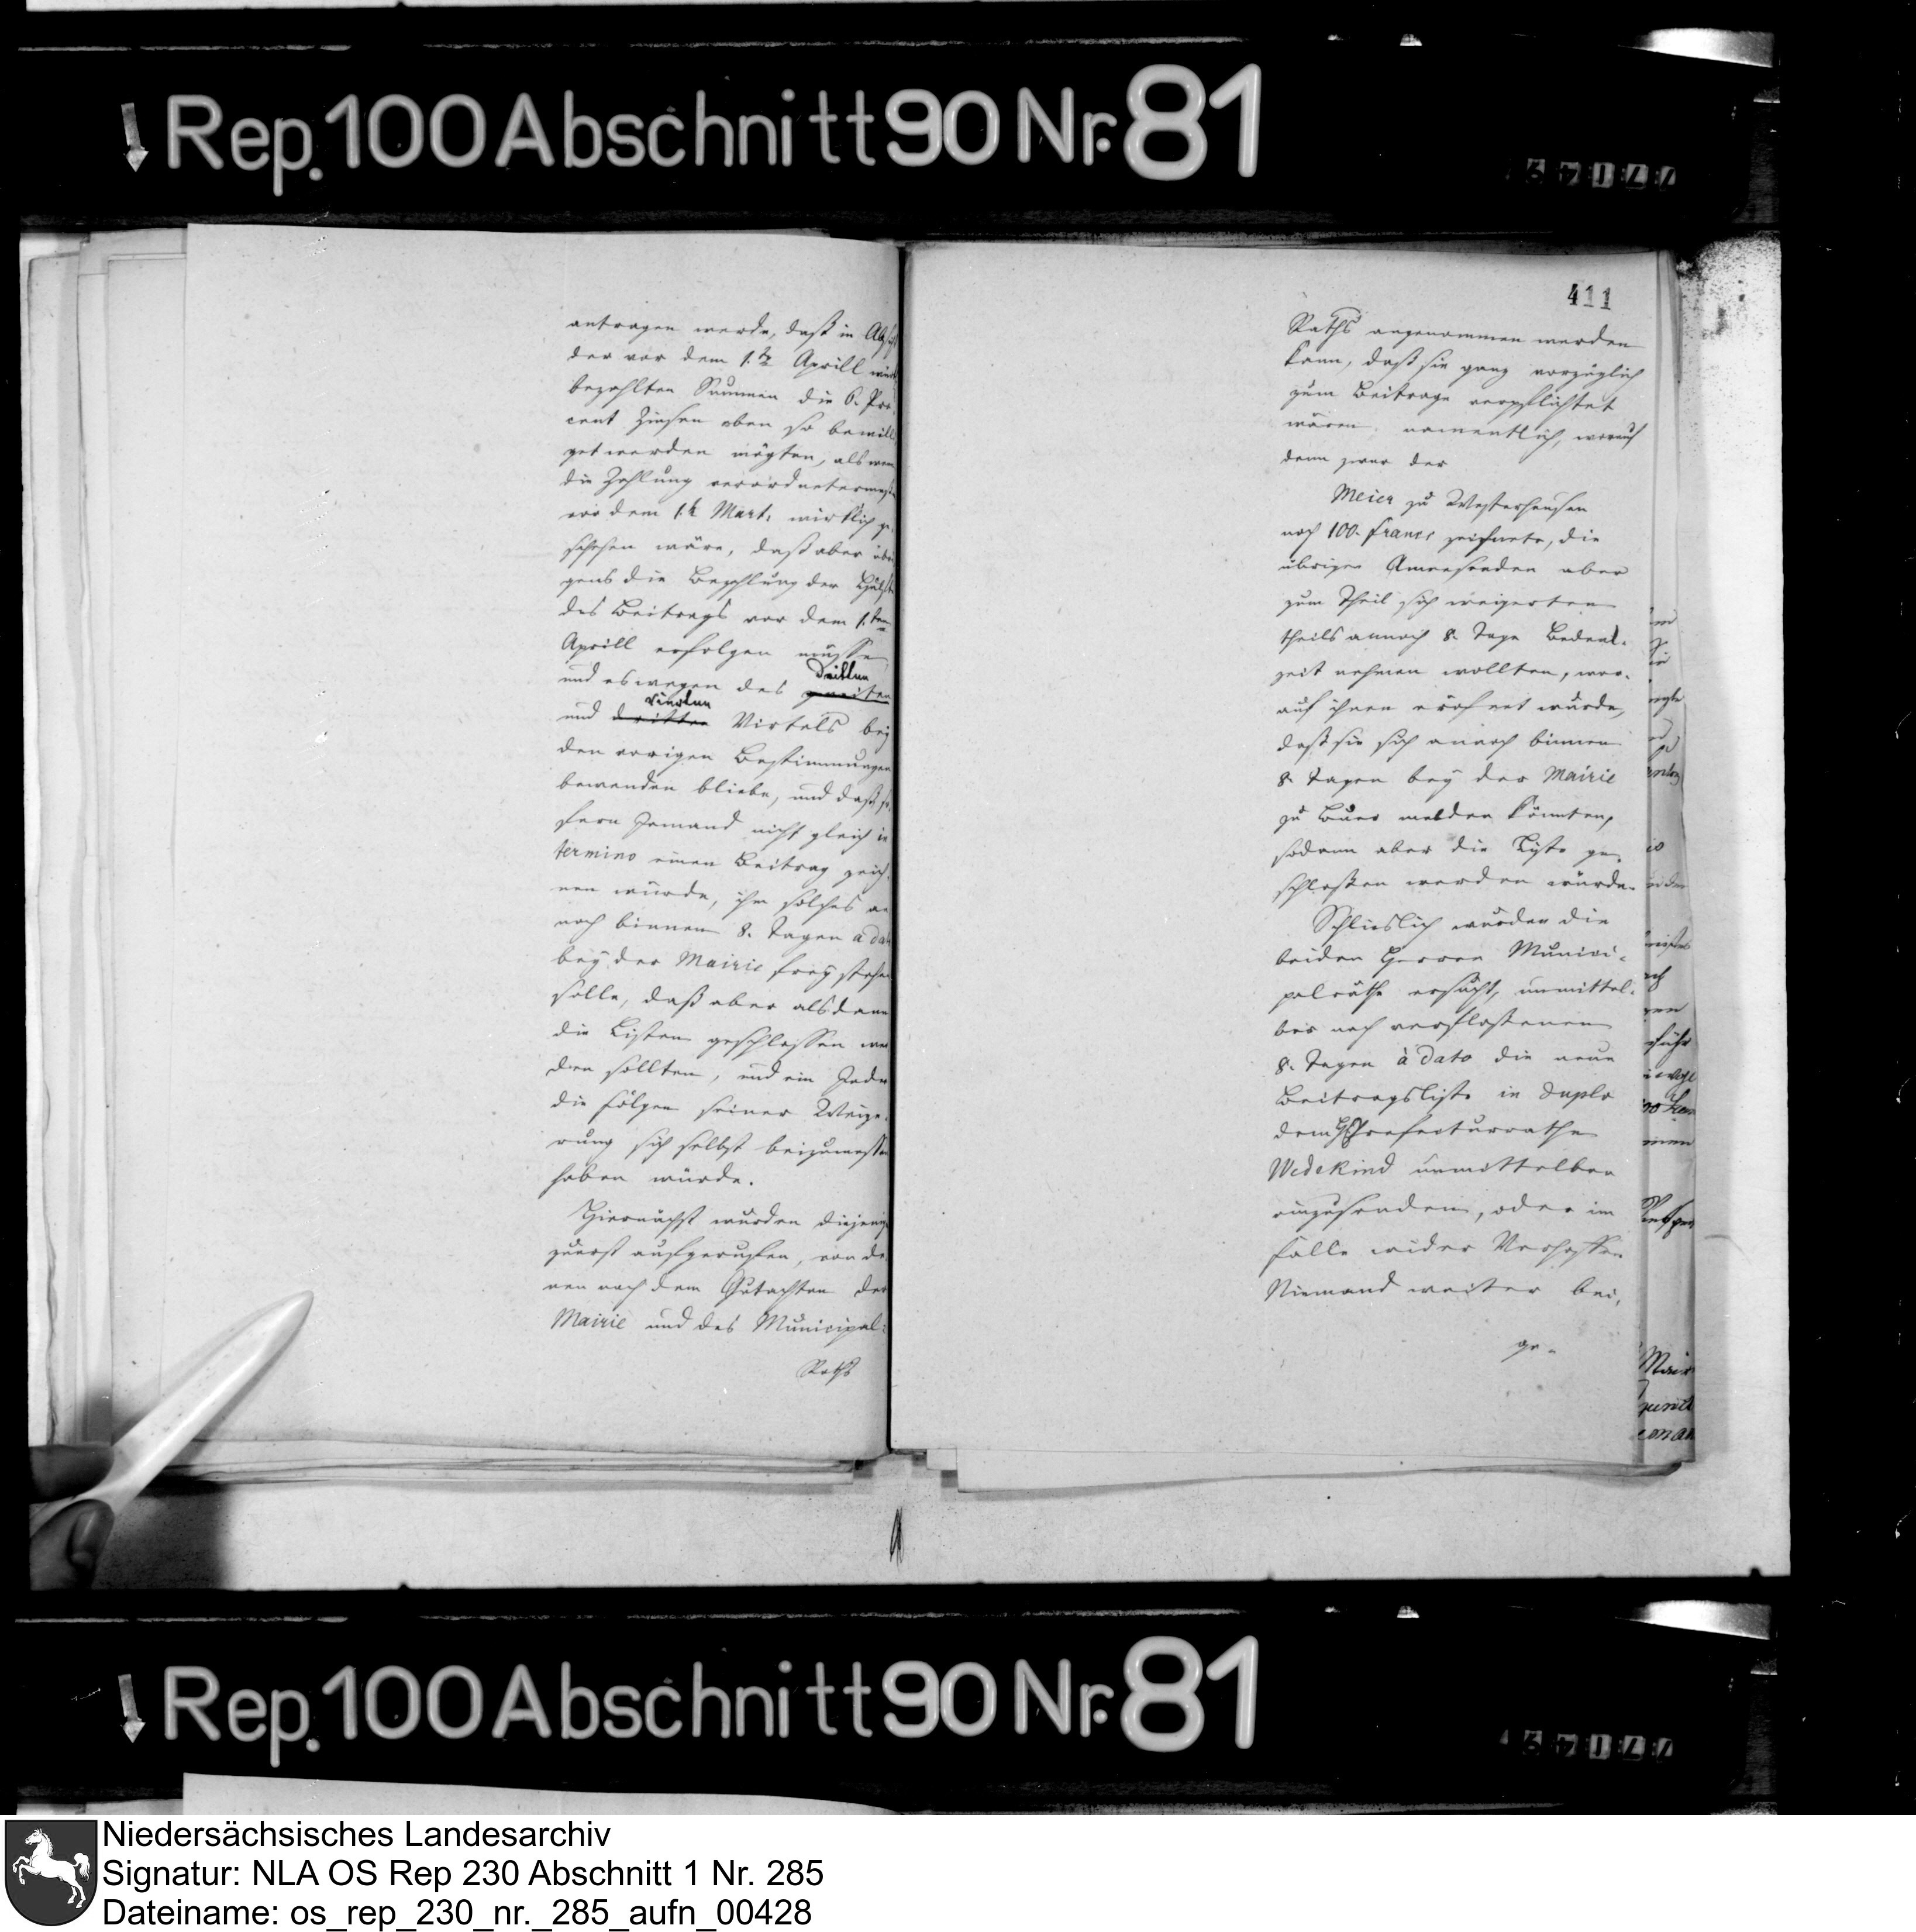 Rep. 100 Abschnitt 90 Nr. 81
antragen werde, daß in Abs
der vor dem 1.ten Aprill würk
bezahlten Summen die 6. Pro
cent Zinsen eben so bewilli
get werden mögten, als wenn
die Zahlung verordnetermaß
vor dem 1.t Mart. wirklich ge
schehen wäre, daß aber übri
gens die Bezahlung der Hälfte
des Beitrags vor dem 1.ten
Aprill erfolgen müsse,
dritten
und es wegen des zweiten
vierten
und dritten Virtels bey
den vorigen Bestimmungen
bewenden bliebe, und daß so
fern Jemand nicht gleich in
termino einen Beitrag zeich
nen würde, ihm solches an
noch binnen 8. Tagen a dato
bey der Mairie frey stehen
solle, daß aber alsdann
die Listen geschlossen wer
den sollten, und ein Jeder
die Folgen seiner Weige
rung sich selbst beizumessen
haben würde.
Hiernächst wurden diejenigen
zuerst aufgerufen, von de
nen nach dem Gutachten der
Mairie und des Municipal:
Raths
411
Raths angenommen werden
kann, daß sie ganz vorzüglich
zum Beitrage verpflichtet
wären. namentlich, worauf
denn zwar der
Meier zu Westerhausen
noch 100. francs zeichnete, die
übrigen Anwesenden aber
zum Theil sich weigerten
theils annoch 8. Tage Bedenk-
zeit nehmen wollten, wor-
auf ihnen eröfnet wurde,
daß sie sich annoch binnen
8. Tagen bey der Mairie
zu Buer melden könnten,
sodann aber die Liste ge-
schloßen werden würde.
Schlieslich wurden die
beiden Herren Munici-
palräthe ersucht, unmittel-
bar nach verfloßenen
8. Tagen à dato die neue
Beitragsliste in duplo
dem H. Präfecturrathe
Wedekind unmittelbar
einzusenden, oder im
Falle wider Verhoffen
Niemand weiter bei-
ge-
Rep. 100 Abschnitt 90 Nr. 81
Niedersächsisches Landesarchiv
Signatur: NLA OS Rep 230 Abschnitt 1 Nr. 285
Dateiname: os_rep_230_nr._285_aufn_00428